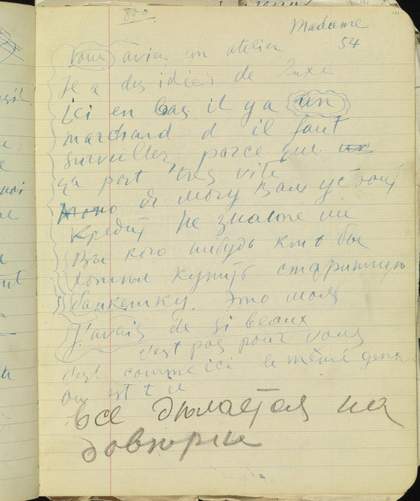 800
Madame
54
Vous aviez un atelier
Je a des idées de Luxe
ici en bas il y a un
marchand d il faut
surveiller parce que
ça part très vite
я могу вам устроит
Кредит Не знаете ли
Вы кого нибудь кто бы
хотел купить старинную
банкетку. Это моля
J'avais de si beaux
c'est pas pour vous
c'est comme ici le même genre
ou est t il
все делается на
доверии